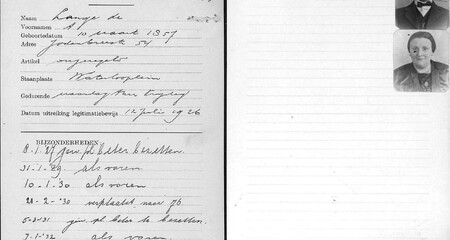 Naam Lange de
Voornamen A
Geboortedatum 10 maart 1857
Adres Jodenbreestr 54
Artikel ongeregeld
Staanplaats Waterlooplein
Gedurende maandag t/m vrijdag
Datum uitreiking legitimatiebewijs 12 Juli 1926
BIJZONDERHEDEN
8.1.27 gew. pl. beter bezetten.
31-1-29. als voren
10-1-30 als voren
21-2-'30 verplaatst naar 76.
5-3-31 gew. pl. beter te bezetten.
7-1-'32 als voren